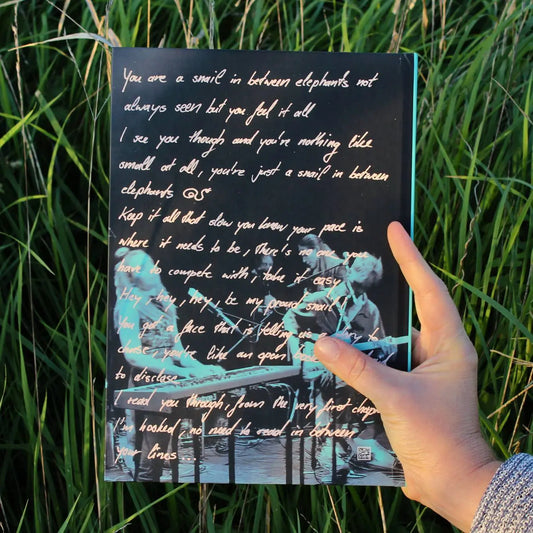 You are a snail in between elephants not
always seen but you feel it all
I see you though and you're nothing like
small at all, you're just a snail in between
elephants
Keep it all that slow you know your pace is
where it needs to be, There's no one you
have to compete with, take it easy
Hey, hey, hey, be my proud snail
You got a face that is telling
you're like an open
to disclose
I read you through from the very first
I'm hooked, no need to read in between
your lines...